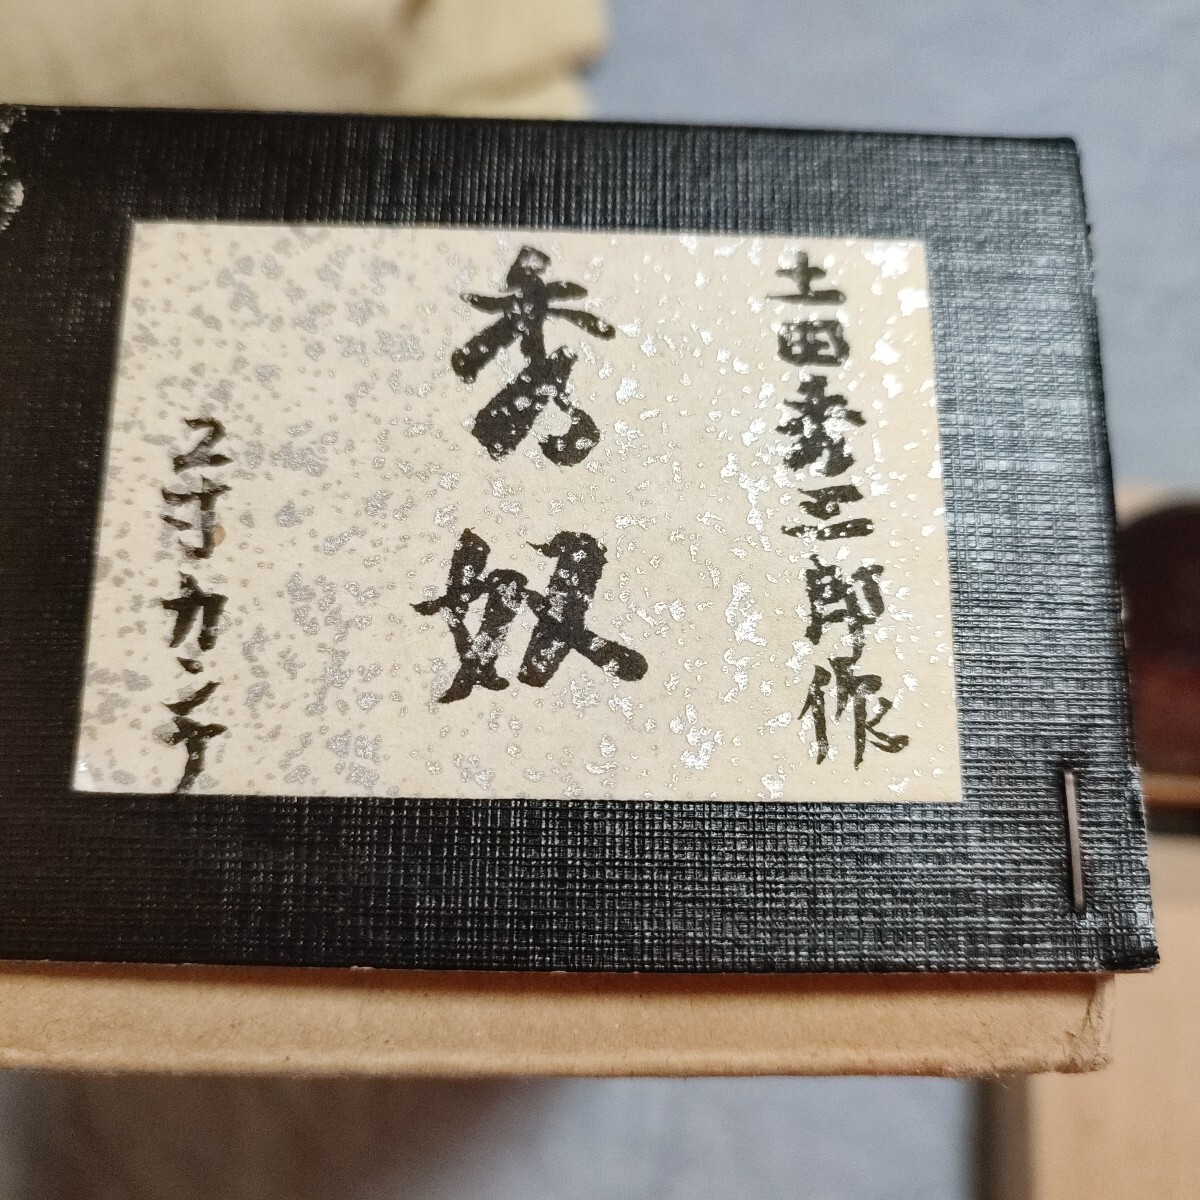 土田秀三郎作
秀奴
2寸カンナ